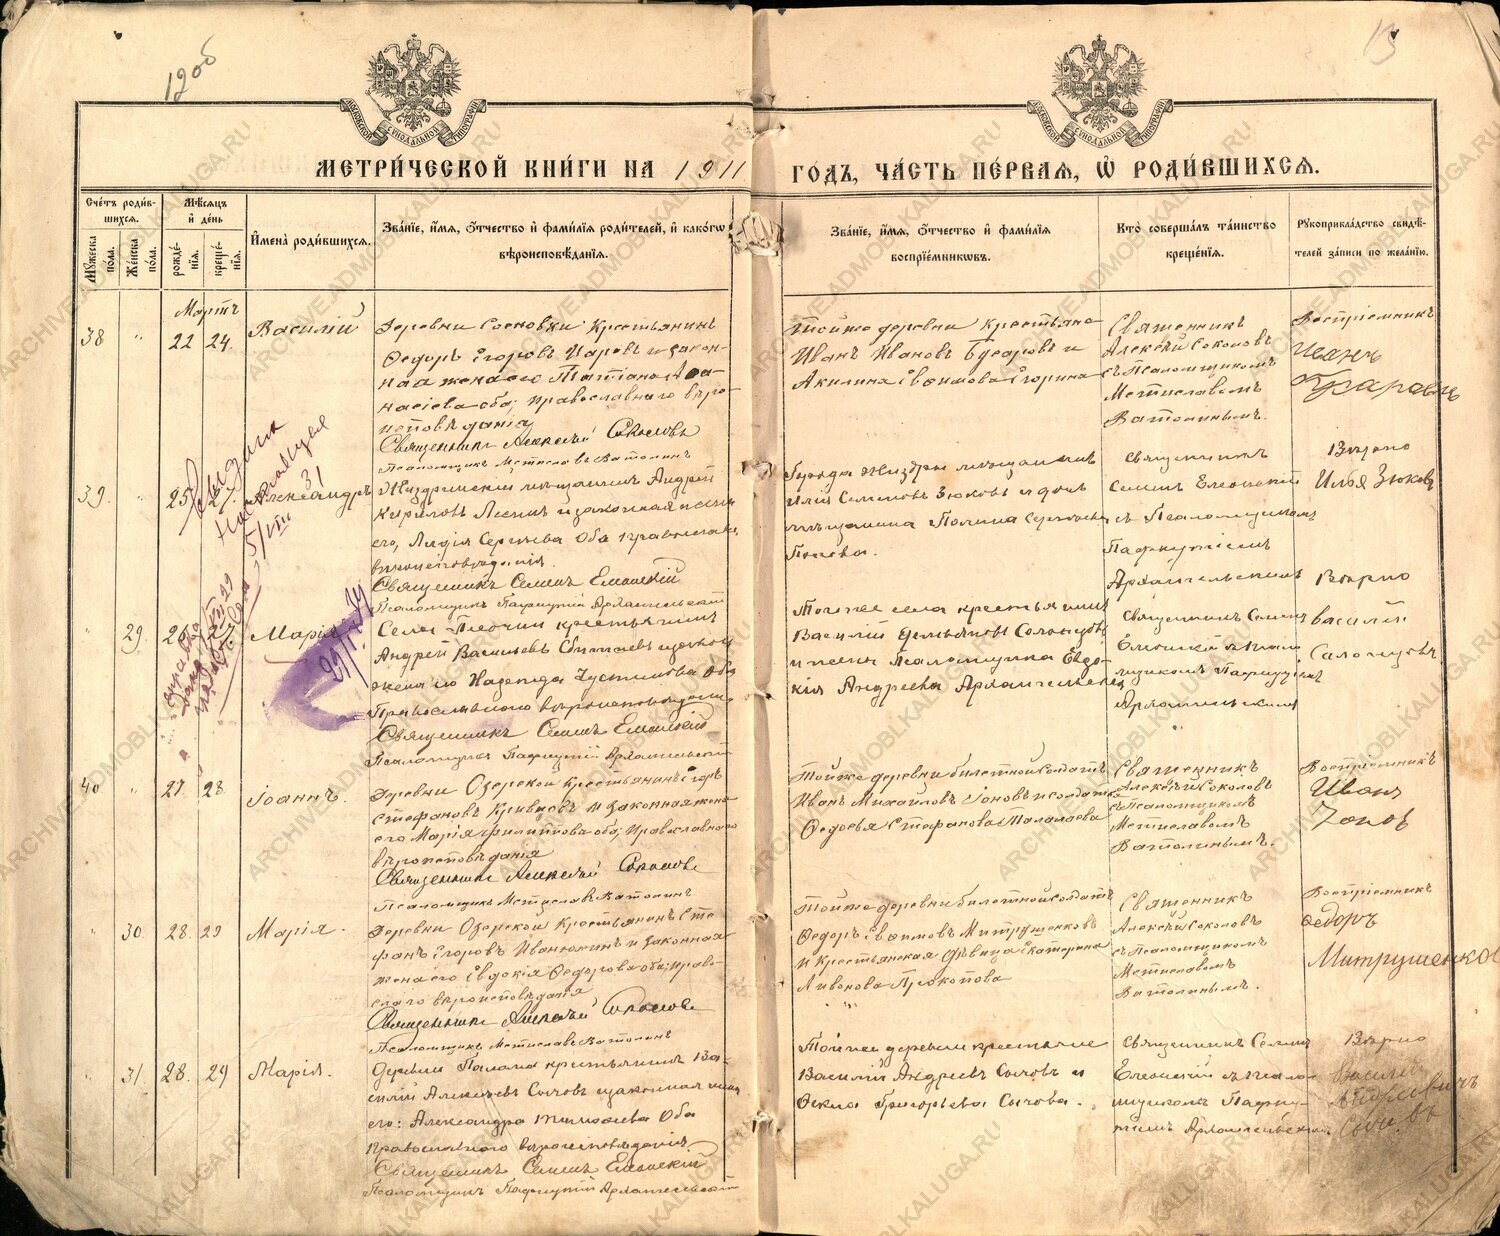 12об
13
МОСКОВСКОЙ СѴНОДАЛЬНОЙ ТИПОГРАФІИ
МОСКОВСКОЙ СѴНОДАЛЬНОЙ ТИПОГРАФІИ
МЕТРИ́ЧЕСКОЙ КНИ́ГИ НА 1911 ГОДЪ, ЧА́СТЬ ПЕ́РВАЯ, Ѡ҆ РОДИ́ВШИХСЯ.
Сче́тъ роди́вшихся.
Му́жеска по́ла.
Же́нска по́ла.
Мѣ́сяцъ и҆ де́нь
рожде́нїя.
креще́нїя.
И҆мена̀ роди́вшихся.
Зва́нїе, и҆́мя, ѻ҆́тчество и҆ фами́лїя роди́телей, и҆ како́гѡ вѣроисповѣ́данїя.
Зва́нїе, и҆́мя, ѻ҆́тчество и҆ фами́лїя воспрїе́мниковъ.
Кто̀ соверша́лъ та́инство креще́нїя.
Рукоприкла́дство свидѣ́телей за́писи по жела́нїю.
Мартъ
38 " 22 24. Василій
Деревни Сосновки Крестьянинъ
Ѳедоръ Егоровъ Царевъ и закон-
ная жена его Татіана Аѳа-
насіева оба; православнаго вѣро-
исповѣданія
Священникъ Алексѣй Соколовъ
Псаломщикъ Мстиславъ Ватолинъ
Тойже деревни крестьяне
Иванъ Ивановъ и
Акилина Евфимова Егорина
Священникъ
Алексѣй Соколовъ
съ Псаломщикомъ
Мстиславомъ
Ватолинымъ.
Воспріемникъ
Иванъ
39. " 25 27 Александръ
Жиздринскій мѣщанинъ Андрей
Кириловъ и законная жена
его, Лидія Сергѣева оба православнаго
вѣроисповѣданія.
Священникъ Семенъ Еленскій
Псаломщикъ Пафнутій Архангельскій
Города Жиздры мѣщанинъ
Илія Семеновъ Зюковъ и дочь
мѣщанина Полина Сергѣева
Попова.
Священникъ
Семенъ Еленскій
съ Псаломщикомъ
Пафнутіемъ
Архангельскимъ
Вѣрно
Илья Зюковъ
5/VIII
31
" 29. 26 27 Марія
Села крестьянинъ
Андрей Васильевъ и законная
жена его Надежда Устинова оба
Православнаго вѣроисповѣданія
Священникъ Семенъ Еленскій
Псаломщикъ Пафнутій Архангельскій
Того же села крестьянинъ
Василій Демьяновъ Солонцовъ
и жена Псаломщика Евдо-
кія Андреева Архангельская
Священникъ Семенъ
Еленскій съ Псало-
мщикомъ Пафнутіемъ
Архангельскимъ
Вѣрно
Василій
Солонцовъ
40 " 27. 28. Іоаннъ.
Деревни Озерской Крестьянинъ Егоръ
Стефановъ и законная жена
его Марія Филиппова оба; Православнаго
вѣроисповѣданія
Священникъ Алексѣй Соколовъ
Псаломщикъ Мстиславъ Ватолинъ
Тойже деревни билетной солдатъ
Иванъ Михайловъ Іоновъ и солдатка
Ѳедосья Стефанова Палалаева
Священникъ
Алексѣй Соколовъ
съ Псаломщикомъ
Мстиславомъ
Ватолинымъ.
Воспріемникъ
Иванъ
" 30. 28. 29 Марія.
Деревни Озерской Крестьянинъ Сте
фанъ Егоровъ Иванюкинъ и законная
жена его Евдокія Ѳедорова оба; право-
славнаго вѣроисповѣданія
Священникъ Алексѣй Соколовъ
Псаломщикъ Мстиславъ Ватолинъ
Тойже деревни билетной солдатъ
Ѳедоръ Евфимовъ Митрушенковъ
и Крестьянская дѣвица Екатерина
Ливонова Прокопова
Священникъ
Алексѣй Соколовъ
съ Псаломщикомъ
Мстиславомъ
Ватолинымъ.
Воспріемникъ
Ѳедоръ
Митрушенковъ
" 31. 28. 29 Марія.
Деревни Палики крестьянинъ Ва-
силій Алексѣевъ Сычовъ и законная жена
его: Александра Тимоѳеева оба
Православнаго вѣроисповѣданія
Священникъ Семенъ Еленскій
Псаломщикъ Пафнутій Архангельскій
Той же деревни крестьяне
Василій Андреевъ Сычовъ и
Ѳекла Григорьева Сычова.
Священникъ Семенъ
Еленскій съ Псало-
мщикомъ Пафну-
тіемъ Архангельскимъ
Вѣрно
Василій
Андреевичъ
Сычовъ
ARCHIVE.ADMOBLKALUGA.RU